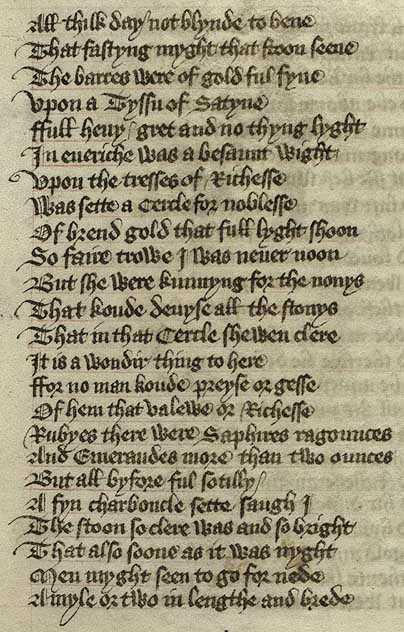 All thilk day / not blynde to bene
That fastyng myght that stoon seene
The barres were of gold ful fyne
Vpon a Tyssu of Satyne
Ffull heuy / gret and no thyng lyght
In eueriche was a besaunt wight
Vpon the tresses of Richesse
Was sette a Cercle for noblesse
Of brend gold that full lyght shoon
So faire trowe I was neuer noon
But she were kunnyng for the nonys
That koude deuyse all the stonys
That in that Cercle shewen clere
It is a wondir thing to here
Ffor no man koude preyse or gesse
Of hem that valewe or Richesse
Rubyes there were Saphires ragounces
And Emeraudes more than two ounces
But all byfore ful sotilly /
A fyn charboncle sette saugh I
The stoon so clere was and so bright
That also soone as it was nyght
Men myght seen to go for nede
A myle or two in lengthe and brede